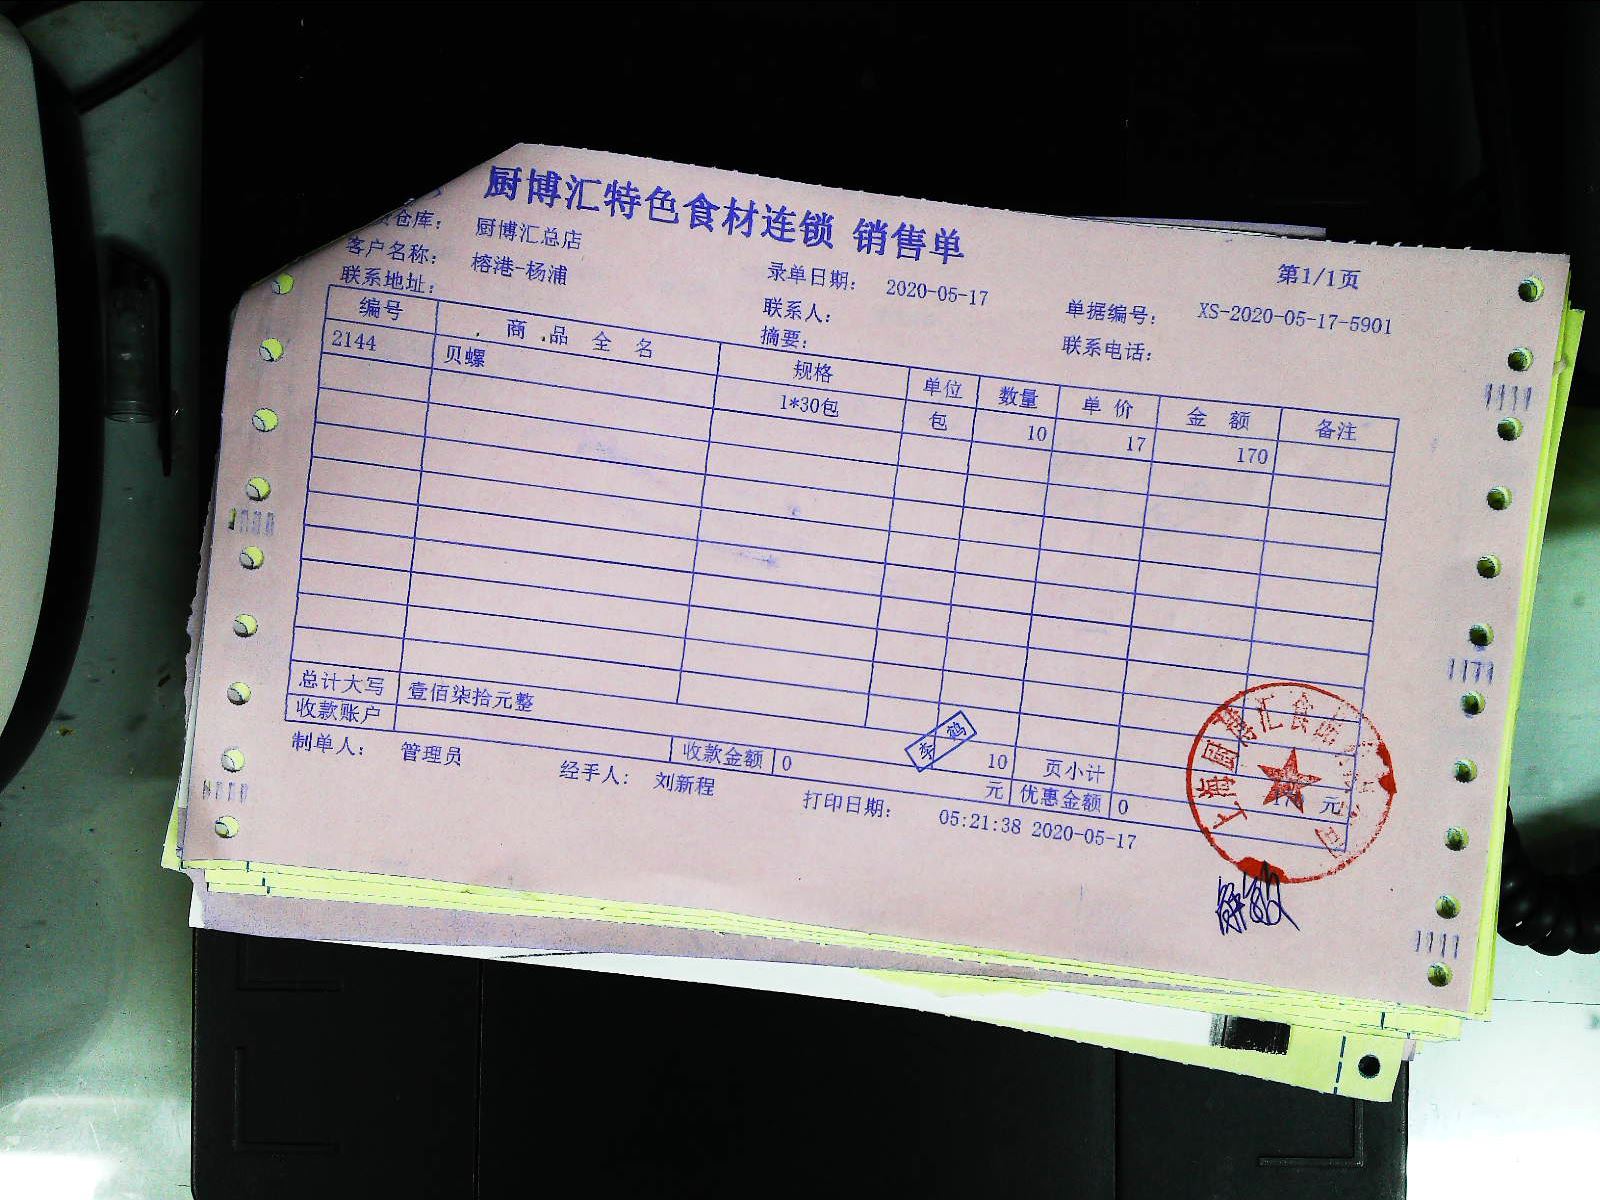 厨博汇特色食材连锁 销售单
第1/1页
仓库： 厨博汇总店
录单日期： 2020-05-17
单据编号： XS-2020-05-17-5901
客户名称： 榕港-杨浦
联系人：
联系电话：
联系地址：
摘要：
编号 商 品 全 名 规格 单位 数量 单 价 金 额 备注
2144 贝螺 1*30包 包 10 17 170
总计大写 壹佰柒拾元整 10 页小计 元
收款账户 收款金额 0 元 优惠金额 0
制单人： 管理员 经手人： 刘新程 打印日期： 05:21:38 2020-05-17